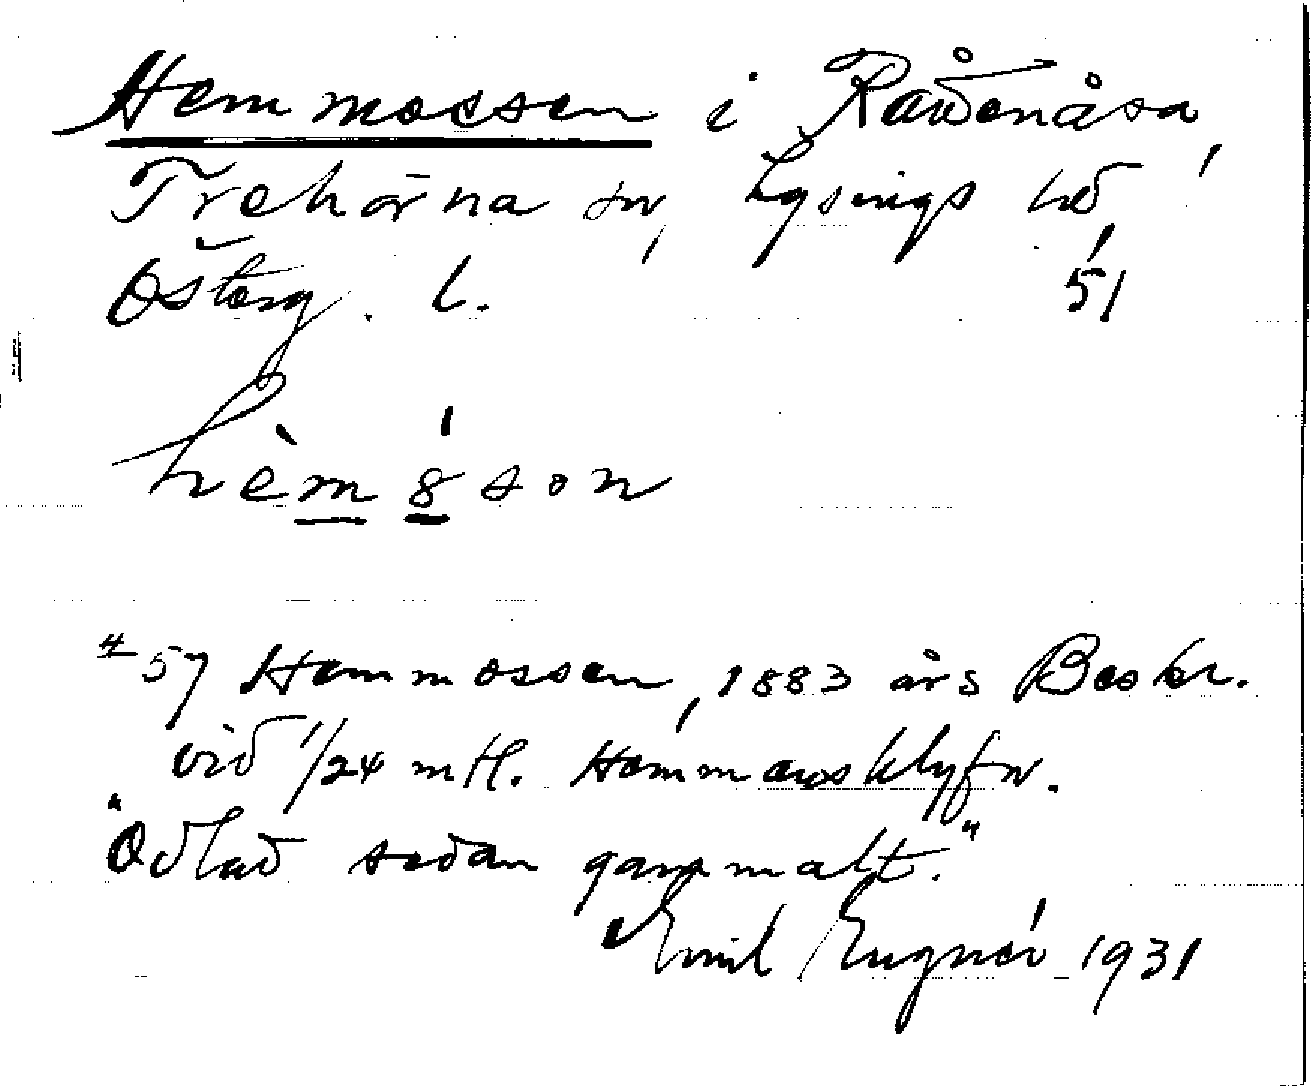 Hemmossen i Rådenåsa,
Trehörna sn, Lysings hd,
Österg. l. 51
hèmȣ́son
#57 Hemmossen, 1883 års Beskr.
vid 1/24 mtl. Hemmansklyfn.
"Odlad sedan gammalt."
Emil Eugnér 1931